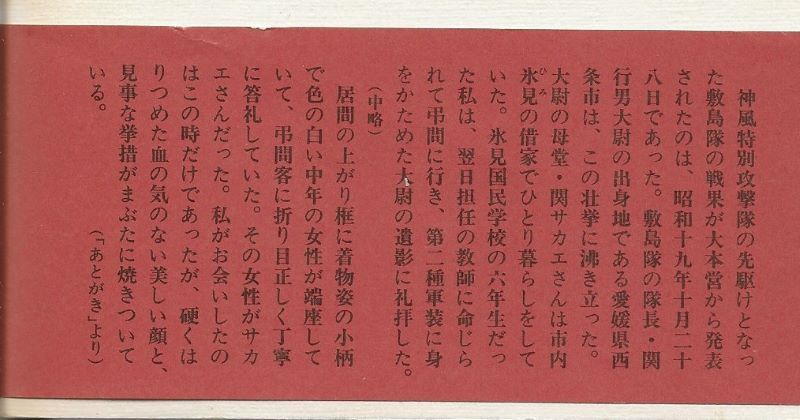 神風特別攻撃隊の先駆けとなっ
た敷島隊の戦果が大本営から発表
されたのは、昭和十九年十月二十
八日であった。敷島隊の隊長・関
行男大尉の出身地である愛媛県西
条市は、この壮挙に沸き立った。
大尉の母堂・関サカエさんは市内
氷見の借家でひとり暮らしをして
ひみ
いた。氷見国民学校の六年生だっ
た私は、翌日担任の教師に命じら
れて弔問に行き、第二種軍装に身
をかためた大尉の遺影に礼拝した。
(中略)
居間の上がり框に着物姿の小柄
で色の白い中年の女性が端座して
いて、弔問客に折り目正しく丁寧
に答礼していた。その女性がサカ
エさんだった。私がお会いしたの
はこの時だけであったが、硬くは
りつめた血の気のない美しい顔と、
見事な挙措がまぶたに焼きついて
いる。
(「あとがき」より)